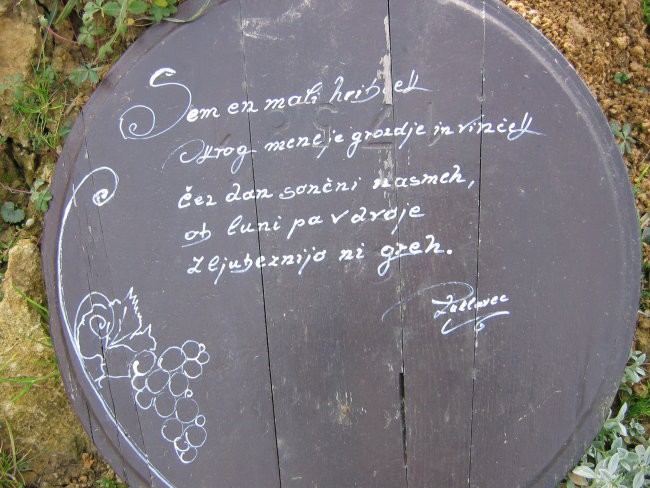 Sem en mali hribček
okrog mene je grozdje in vinček
čez dan sončni nasmeh,
ob luni pa v dvoje
z ljubeznijo ni greh.